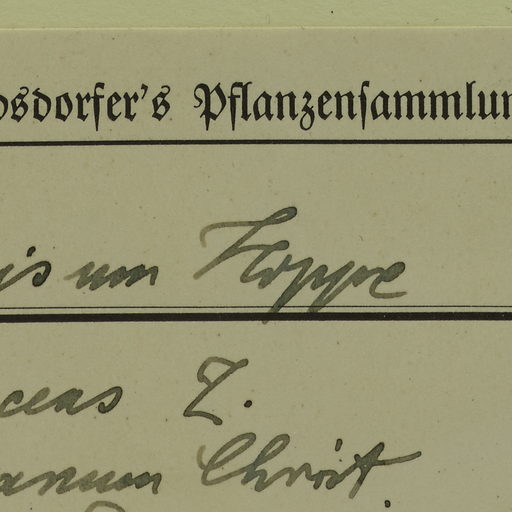 osdorfer's Pflanzensammlun
is um Hoppe
ceas L.
anum Christ.